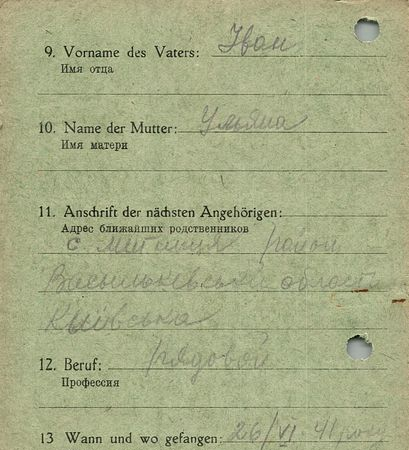 9. Vorname des Vaters: Іван
Имя отца
10. Name der Mutter: Ульяна
Имя матери
11. Anschrift der nächsten Angehörigen:
Адрес ближайших родственников
с. Митниця район
Васильківський область
Київська
12. Beruf: рядовой
Профессия
13 Wann und wo gefangen: 26/VI 41